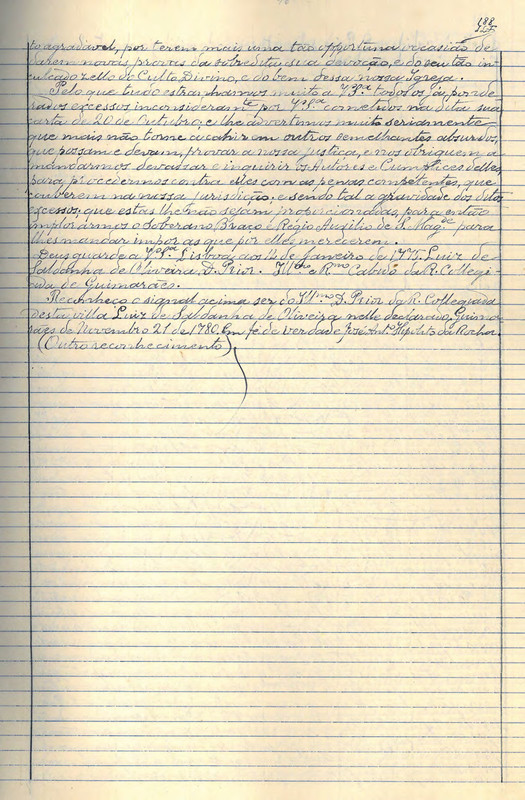 188
to agradavel, por terem mais uma tão opportuna occasião de
darem novas provas da sobredita, sua devoção, e do seu tão in
culcado zello do Culto Divino, e do bem dessa nossa Igreja.
Pelo que tudo estranhamos muito a V.S.ª todos os ponde
rados excessos inconsideradam.te por V.S.ª cometivos na dita sua
carta de 20 de Outubro, e lhe advertimos muito seriamente
que mais não torne a cahir em outros semelhantes absurdos,
que possam e devam, provar a nossa justiça, e nos obriguem a
mandarmos devassar e inquirir os Autores e Cumplices delles,
para procedermos contra elles com as penas competentes, que
couberem na nossa jurisdição: e sendo tal a gravidade dos ditos
excessos, que estas lhe não sejam proporcionadas, para então
implorarmos o Soberano Braço e Regio Auxilio de S. Mag.de para
lhes mandar impor as que por elles merecerem.
Deus guarde a V.S.ª Lisboa aos 14 de Janeiro de 1775. Luiz de
Saldanha de Oliveira, D. Prior. Ill.mo e R.mo Cabido da R. Collegi
ada de Guimarães.
Reconheço o signal acima ser do Ill.mo D. Prior da R. Collegiada
desta villa Luiz de Saldanha de Oliveira nelle declarado. Guima
rães de Novembro 21 de 1780. Em fé de verdade José Ant.º Hipolito da Rocha.
(Outro reconhecimento)